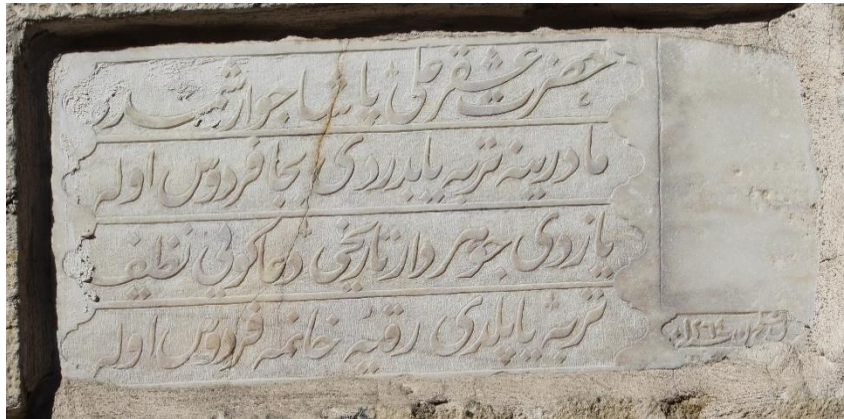 حضرت عشقر علی پاشا جوار
مادرینه تربه یاپدردی بجا فردوس اوله
یازدی جوهردار تاریخی دعاکویی نظیف
تربه یاپلدی رقیه خانمه فردوس اوله
١٢٦٤